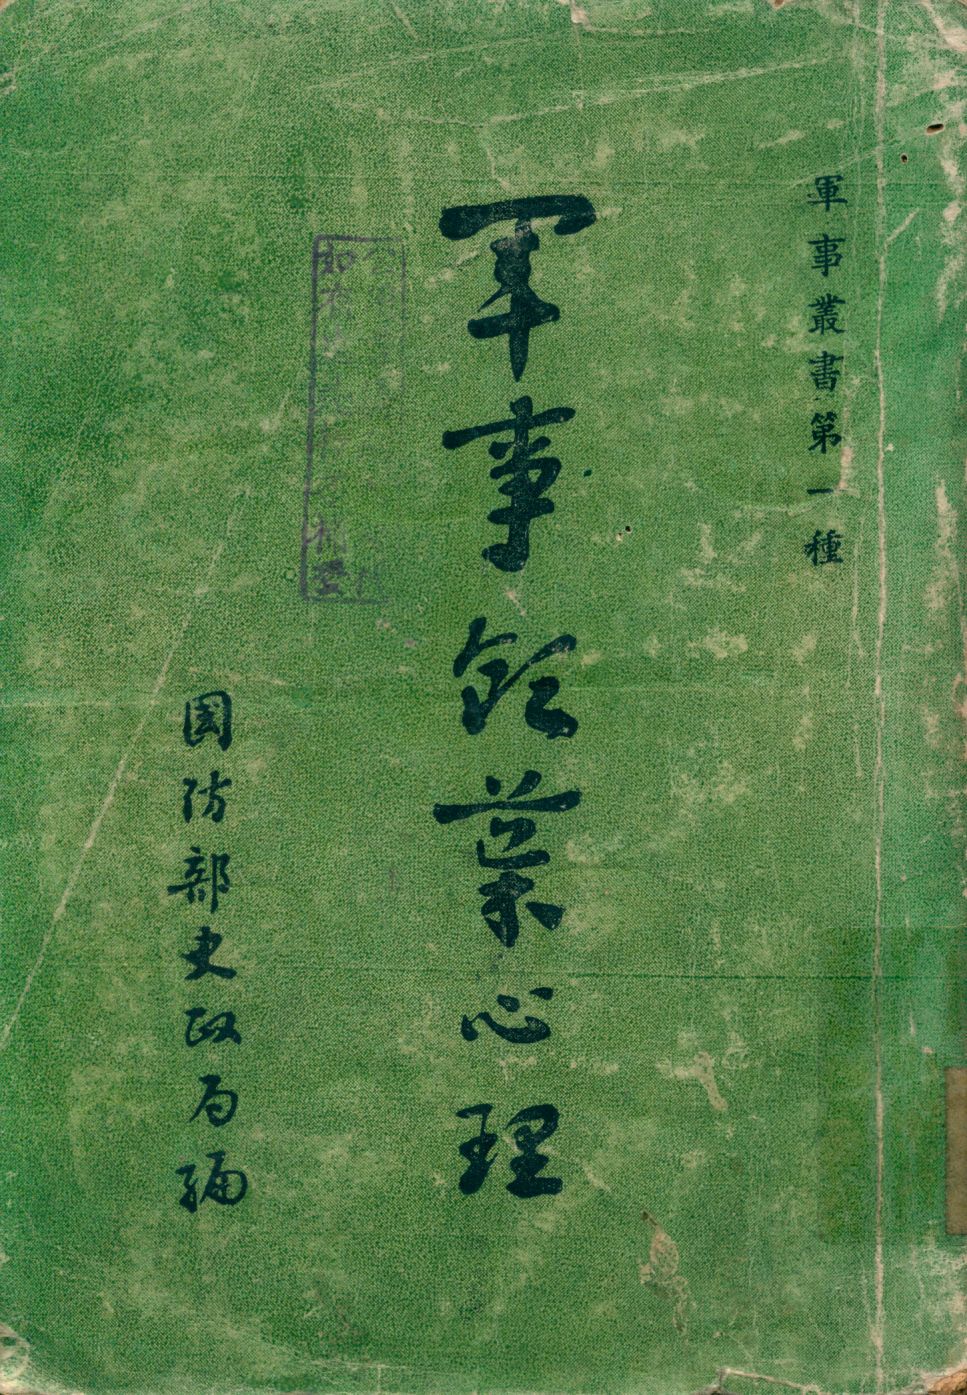 軍事叢書第一種
軍事領心理
國防部史政局編